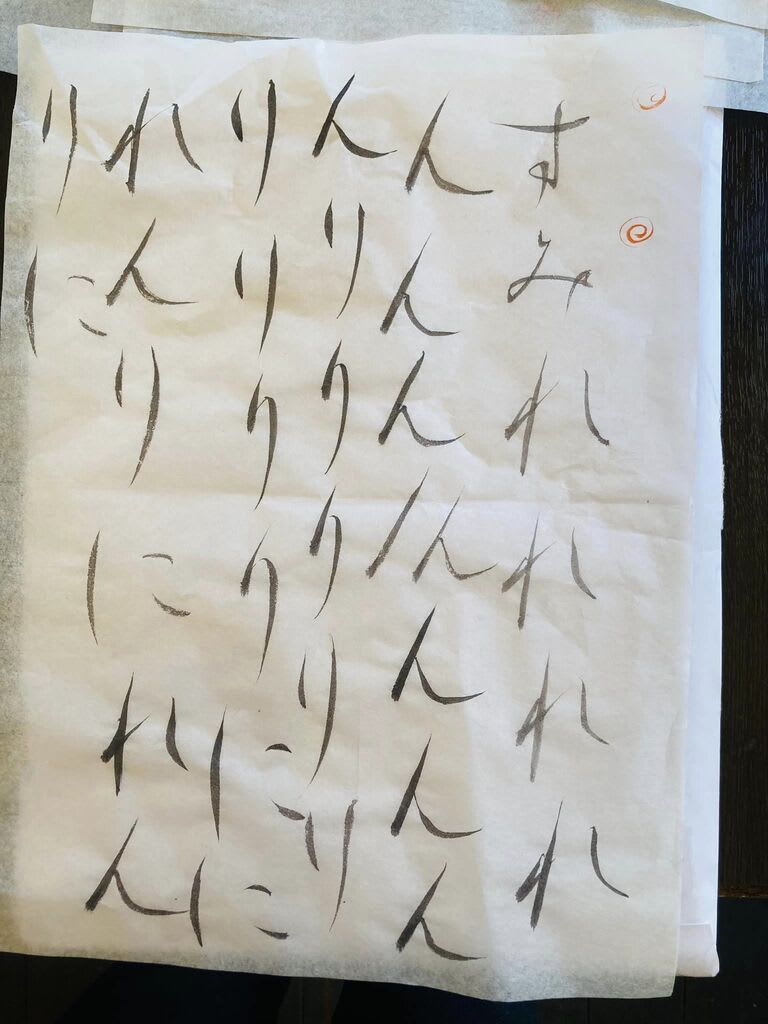 すみれれれれ
んんんんんんん
んりりりりり
りりりりにに
れんりにれん
りに